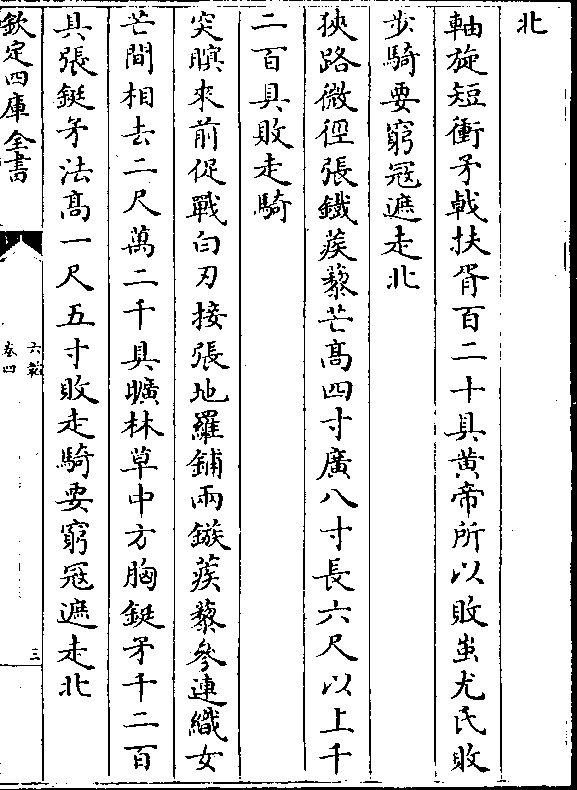 北
軸旋短衝矛戟扶胥百二十具黃帝所以敗蚩尤氏敗
步騎要窮冦遮走北
狹路微徑張鐵蒺藜芒高四寸廣八寸長六尺以上千
二百具敗走騎
突瞑來前促戰白刃接張地羅鋪兩鏃蒺藜參連織女
芒間相去二尺萬二千具曠林草中方胸鋌矛千二百
具張鋌矛法高一尺五寸敗走騎要窮冦遮走北
欽定四庫全書
六韜
卷四
三